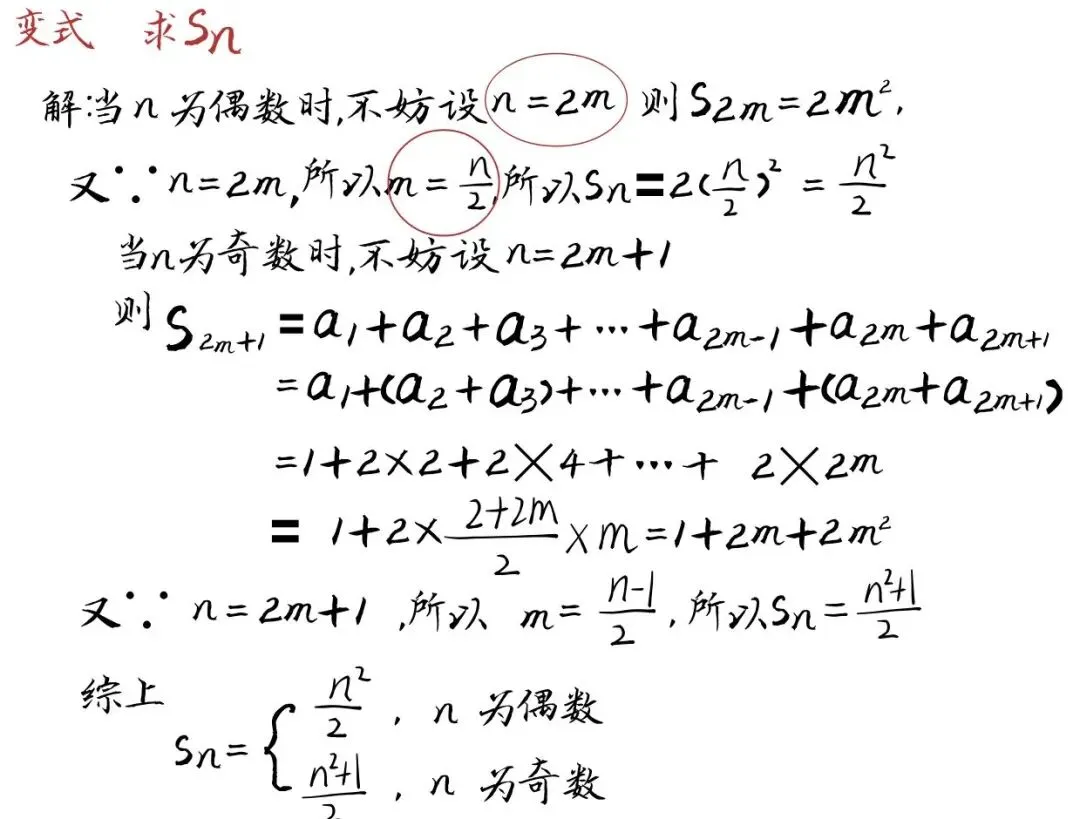 变式 求Sn
解:当n为偶数时,不妨设n=2m 则S₂ₘ=2m²,
又∵n=2m,所以m=n/2,所以Sn=2(n/2)²=n²/2
当n为奇数时,不妨设n=2m+1
则 S₂ₘ₊₁=a₁+a₂+a₃+…+a₂ₘ₋₁+a₂ₘ+a₂ₘ₊₁
=a₁+(a₂+a₃)+…+a₂ₘ₋₁+(a₂ₘ+a₂ₘ₊₁)
=1+2×2+2×4+…+ 2×2m
= 1+2×(2+2m)/2×m=1+2m+2m²
又∵ n=2m+1,所以 m=(n-1)/2,所以Sn=(n²+1)/2
综上
Sn={ n²/2, n为偶数
(n²+1)/2, n为奇数